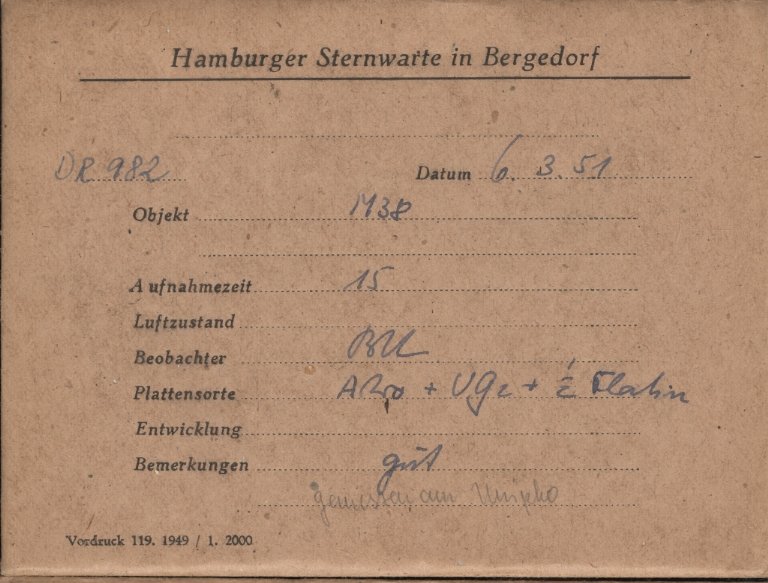 Hamburger Sternwarte in Bergedorf
DR 982 Datum 6. 3. 51
Objekt M38
Aufnahmezeit 15
Luftzustand
Beobachter
Plattensorte + +
Entwicklung
Bemerkungen gut
gemessen am
Vordruck 119. 1949 / 1. 2000